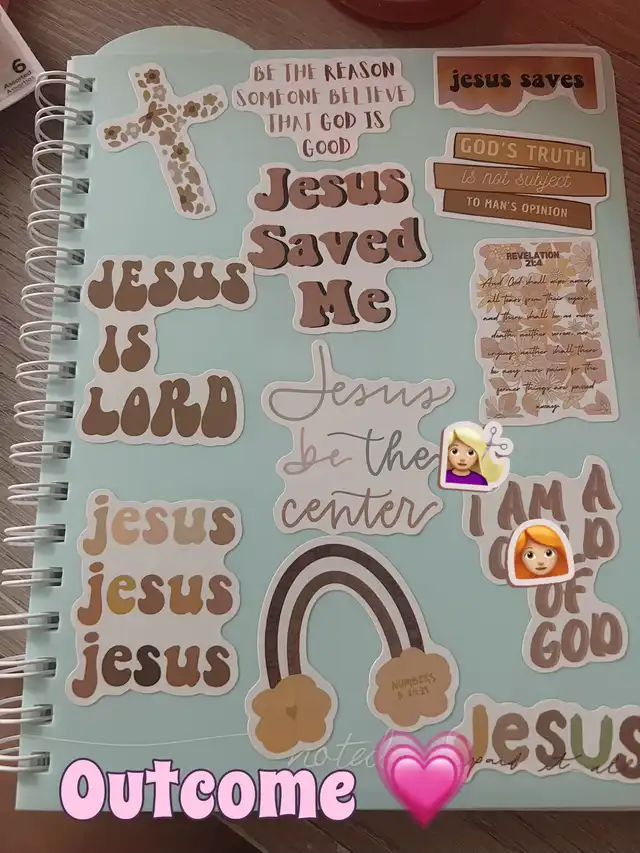 6
Assorted
BE THE REASON
SOMEONE BELIEVE
THAT GOD IS
GOOD
jesus saves
GOD'S TRUTH
is not subject
TO MAN'S OPINION
Jesus
Saved
Me
JESUS
IS
LORD
REVELATION
21:4
And God shall wipe away
all tears from their eyes;
and there shall be no more
death, neither sorrow, nor
crying, neither shall there
be any more pain: for the
former things are passed
away.
Jesus
be the
center
I AM A
OF
GOD
jesus
jesus
jesus
NUMBERS
Jesus
paid it
noted
Outcome